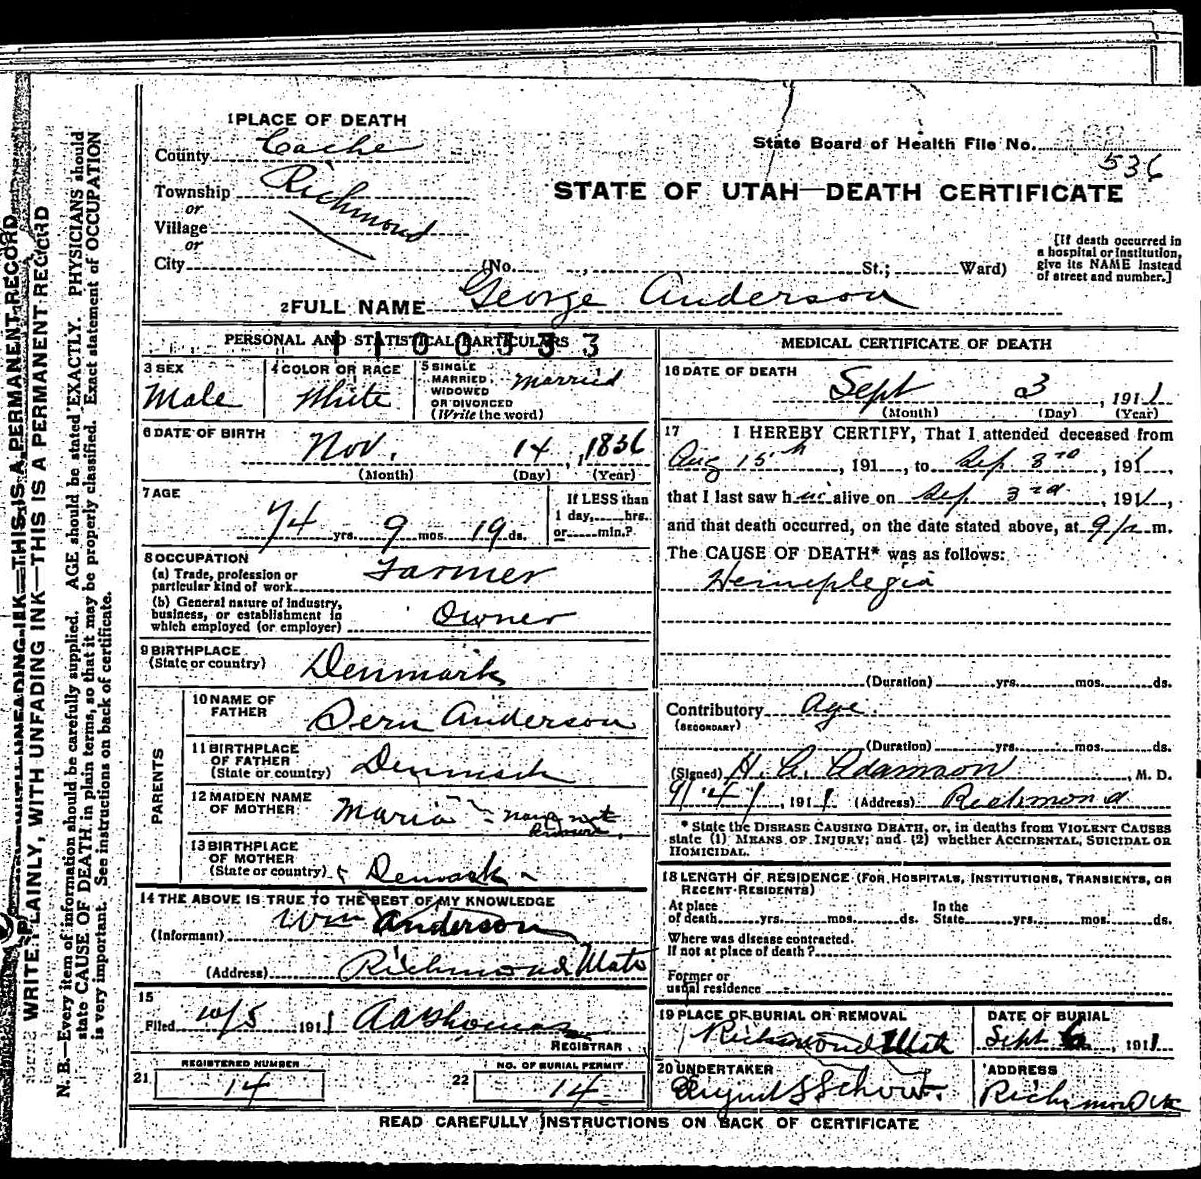 1 PLACE OF DEATH
County Cache
State Board of Health File No.
536
Township Richmond
or
Village
or
City
STATE OF UTAH—DEATH CERTIFICATE
(No. St.; Ward)
[If death occurred in a hospital or institution, give its NAME instead of street and number.]
2 FULL NAME George Anderson
PERSONAL AND STATISTICAL PARTICULARS
1100333
3 SEX
Male
4 COLOR OR RACE
White
5 SINGLE
MARRIED
WIDOWED
OR DIVORCED
(Write the word)
Married
6 DATE OF BIRTH
Nov. 14, 1836
(Month) (Day) (Year)
7 AGE
74 yrs. 9 mos. 19 ds.
If LESS than
1 day, hrs.
or min.?
8 OCCUPATION
(a) Trade, profession or
particular kind of work Farmer
(b) General nature of industry,
business, or establishment in
which employed (or employer) Owner
9 BIRTHPLACE
(State or country) Denmark
PARENTS
10 NAME OF
FATHER Anderson
11 BIRTHPLACE
OF FATHER
(State or country) Denmark
12 MAIDEN NAME
OF MOTHER Maria
13 BIRTHPLACE
OF MOTHER
(State or country) Denmark
14 THE ABOVE IS TRUE TO THE BEST OF MY KNOWLEDGE
(Informant) Wm Anderson
(Address) Richmond Utah
15
Filed 10/5 1911
REGISTRAR
REGISTERED NUMBER
21 14
NO. OF BURIAL PERMIT
22 14
MEDICAL CERTIFICATE OF DEATH
16 DATE OF DEATH
Sept 3, 1911
(Month) (Day) (Year)
17 I HEREBY CERTIFY, That I attended deceased from
Aug 15th, 191 , to Sep 3rd, 191 ,
that I last saw h alive on Sep 3rd, 1911,
and that death occurred, on the date stated above, at m.
The CAUSE OF DEATH* was as follows:
Hemiplegia
(Duration) yrs. mos. ds.
Contributory Age.
(SECONDARY)
(Duration) yrs. mos. ds.
(Signed) H. A. Adamson, M. D.
9/4/, 1911 (Address) Richmond
* State the DISEASE CAUSING DEATH, or, in deaths from VIOLENT CAUSES
state (1) MEANS OF INJURY; and (2) whether ACCIDENTAL, SUICIDAL OR
HOMICIDAL.
18 LENGTH OF RESIDENCE (FOR HOSPITALS, INSTITUTIONS, TRANSIENTS, OR
RECENT RESIDENTS)
At place
of death yrs. mos. ds.
In the
State yrs. mos. ds.
Where was disease contracted.
If not at place of death?
Former or
usual residence
19 PLACE OF BURIAL OR REMOVAL
Richmond Utah
DATE OF BURIAL
Sept 6, 1911
20 UNDERTAKER
ADDRESS
Richmond
READ CAREFULLY INSTRUCTIONS ON BACK OF CERTIFICATE
WRITE PLAINLY, WITH UNFADING INK—THIS IS A PERMANENT RECORD
N. B.—Every item of information should be carefully supplied. AGE should be stated EXACTLY. PHYSICIANS should
state CAUSE OF DEATH in plain terms, so that it may be properly classified. Exact statement of OCCUPATION
is very important. See instructions on back of certificate.